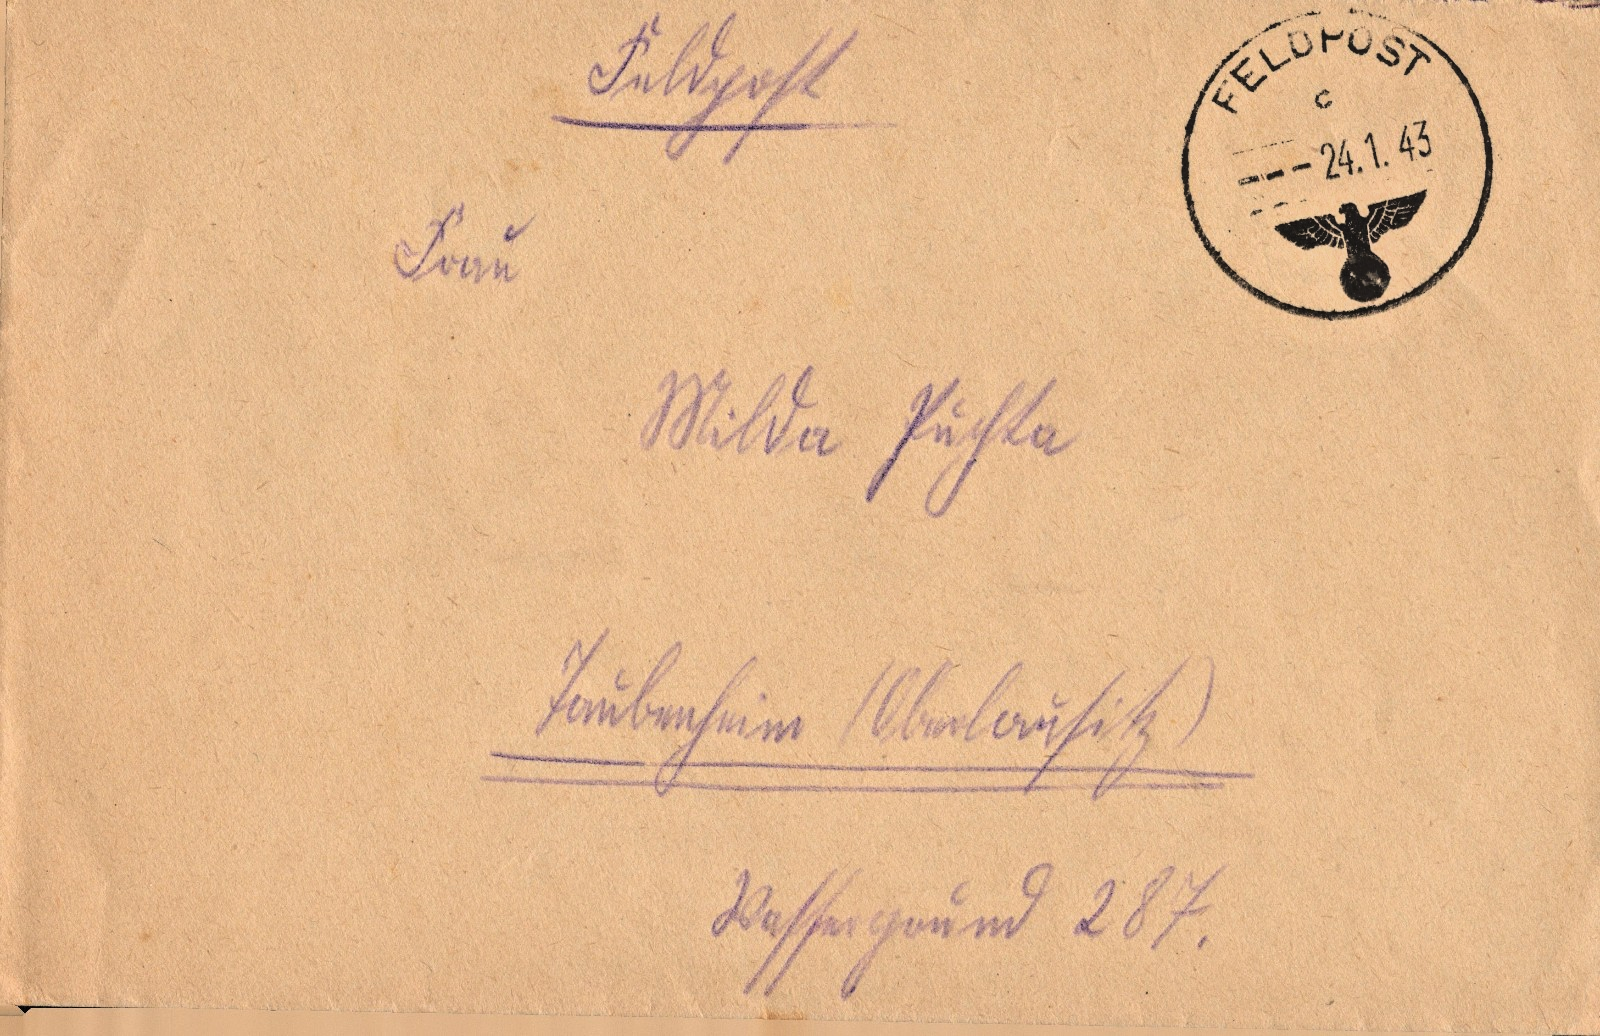 Feldpost
FELDPOST
c
24.1.43
Frau
Milda Puchta
Taubenheim (Oberlausitz)
Wassergrund 287.